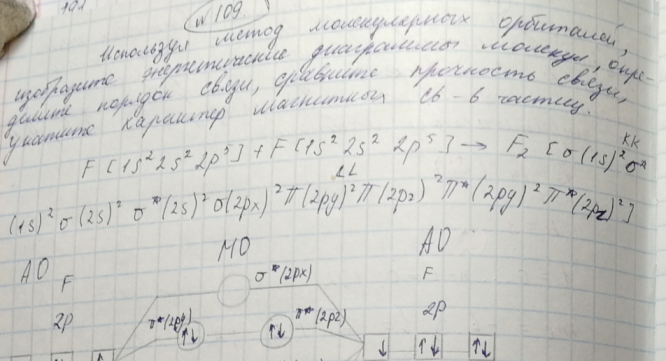 191
№ 109.
Используя метод молекулярных орбиталей,
изобразите энергетические диаграммы молекул, опре-
делите порядок связи, сравните прочность связи,
укажите характер магнитных св-в частиц.
F [1s² 2s² 2p⁵] + F [1s² 2s² 2p⁵] → F₂ [σ(1s)² σ*
KK
(1s)² σ(2s)² σ*(2s)² σ(2px)² π(py)² π(2pz)² π*(2py)² π*(2pz)²]
АО МО АО
F σ*(2px) F
2p π*(2py) ↑↓ ↑↓ π*(2pz) 2p
↑ ↓ ↑↓ ↑↓